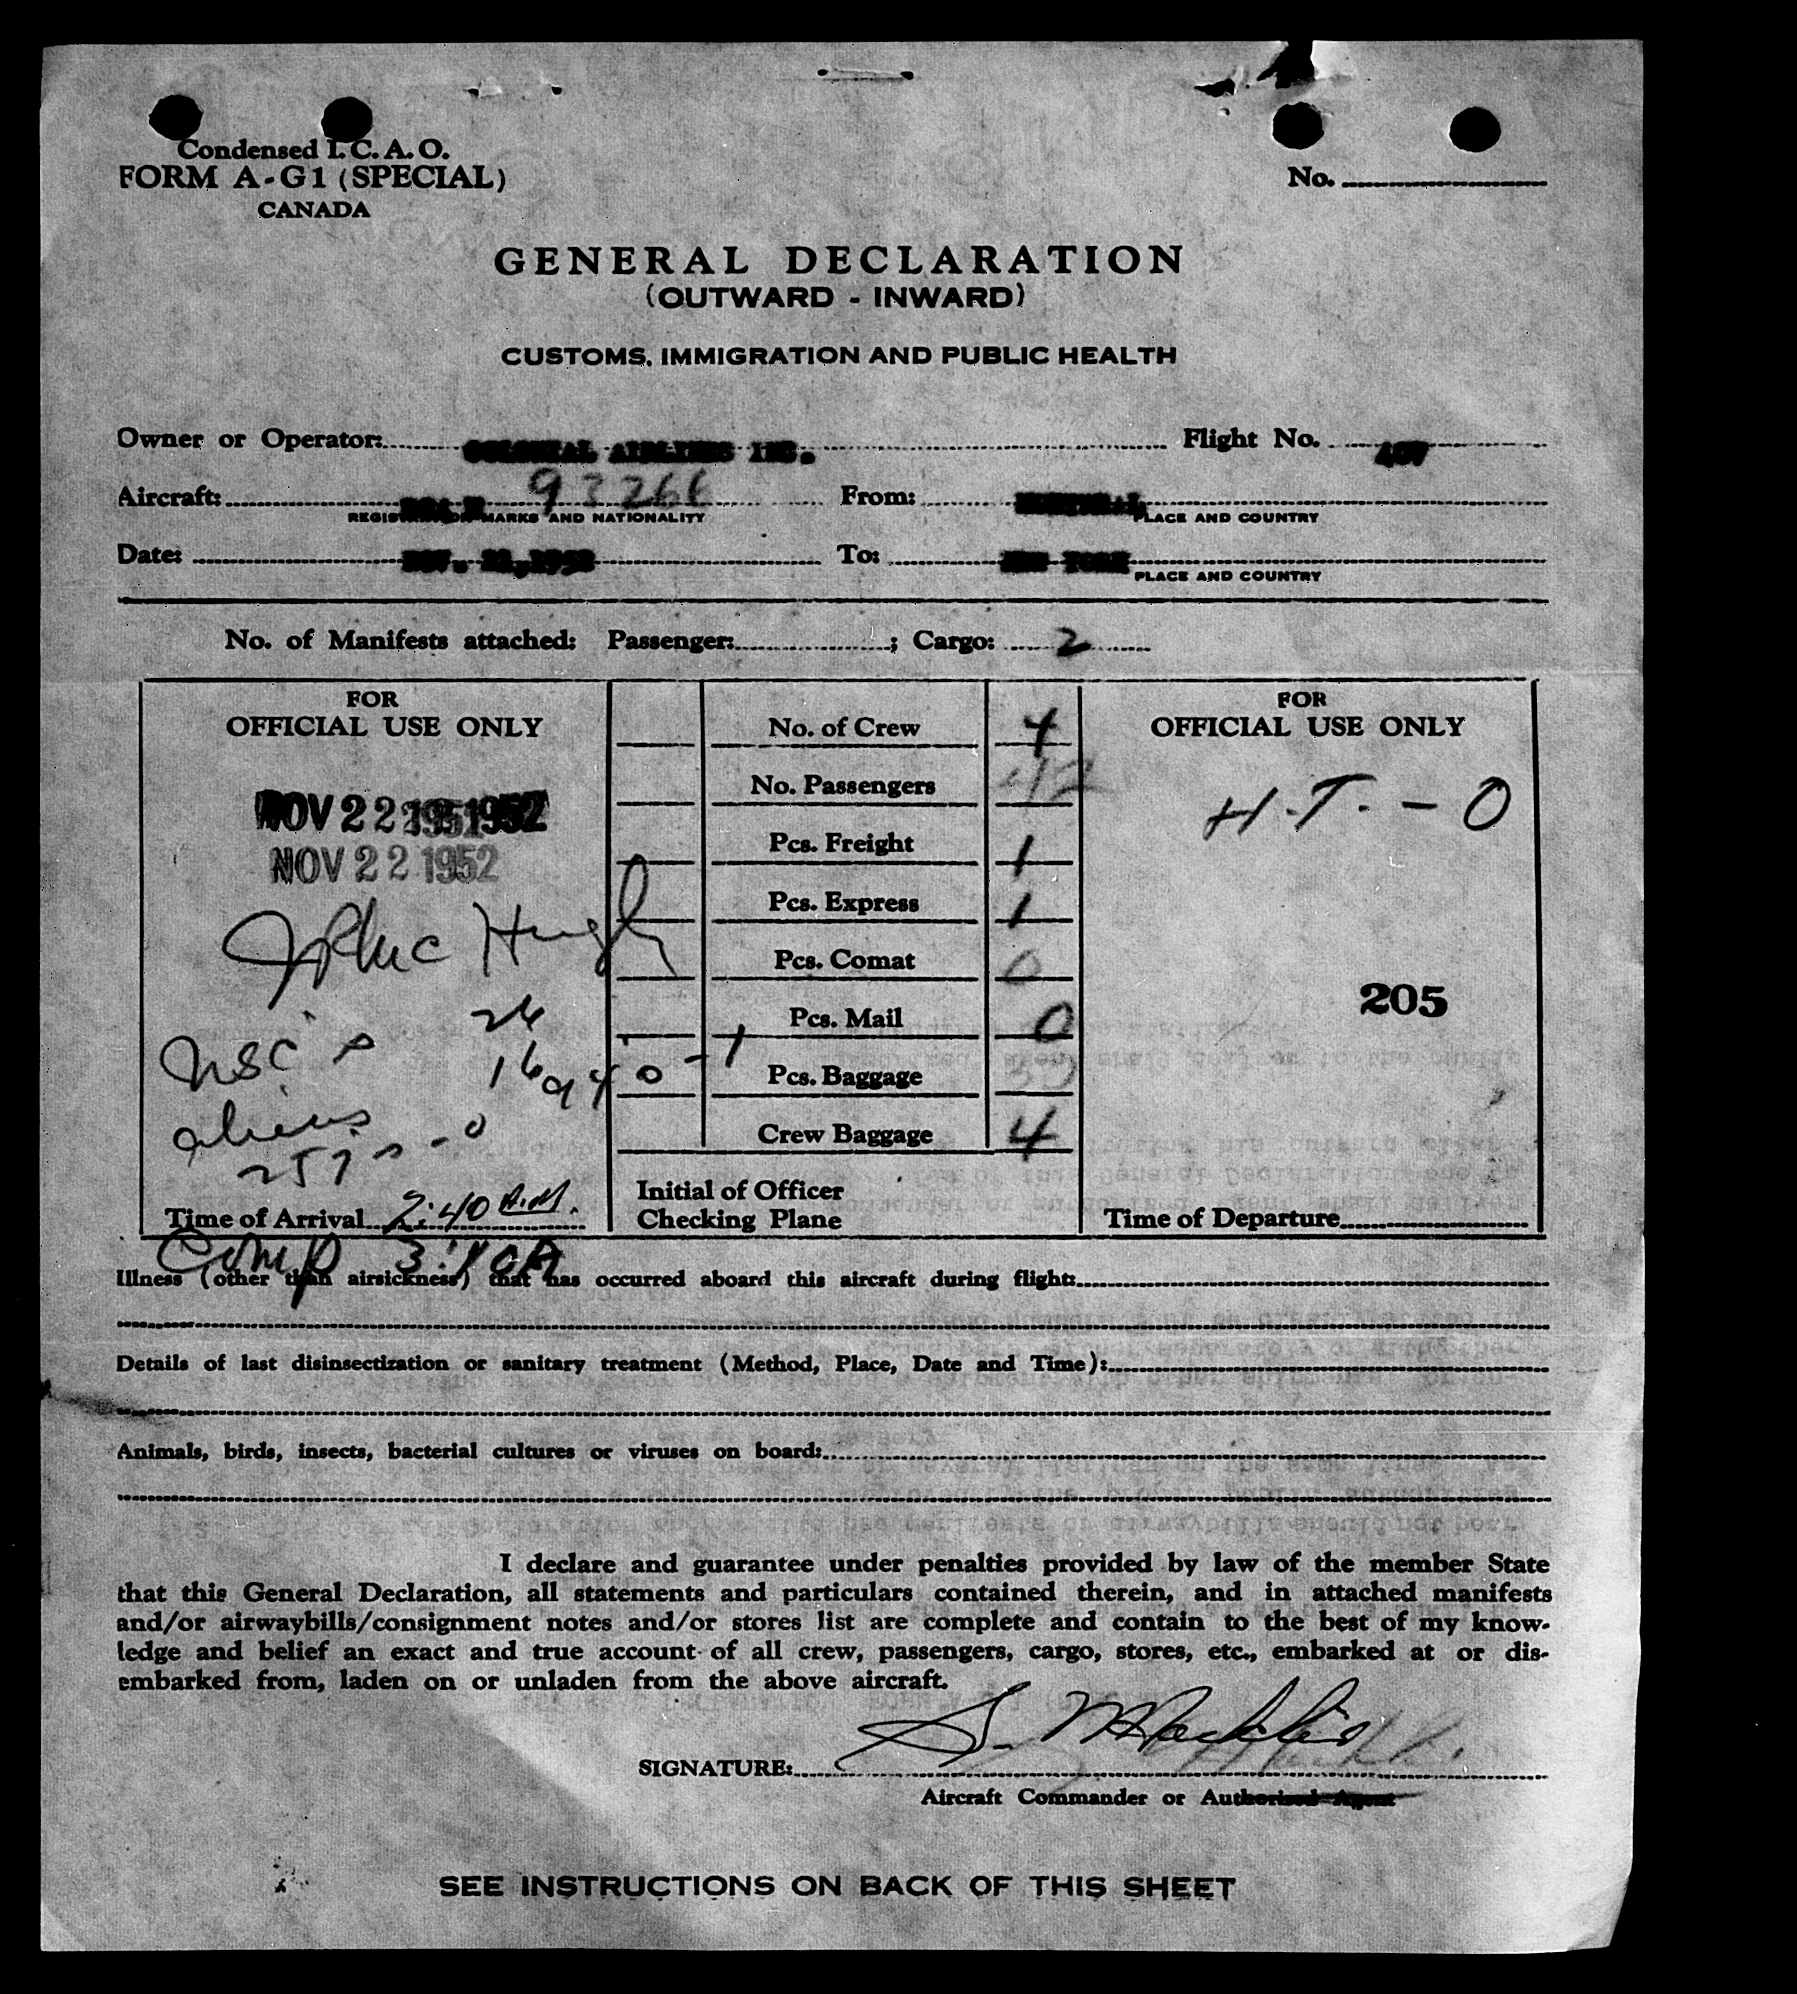 Condensed I. C. A. O.
FORM A-G1 (SPECIAL)
CANADA
No.
GENERAL DECLARATION
(OUTWARD - INWARD)
CUSTOMS, IMMIGRATION AND PUBLIC HEALTH
Owner or Operator: COLONIAL AIRLINES INC. Flight No.
Aircraft: 93266 From: MONTREAL
REGISTRATION MARKS AND NATIONALITY PLACE AND COUNTRY
Date: NOV. 1952 To: NEW YORK
PLACE AND COUNTRY
No. of Manifests attached: Passenger: ; Cargo: 2
FOR
OFFICIAL USE ONLY
NOV 22 1952
NOV 22 1952
Hugh
USC 26
16 94 0 - 1
aliens - 0
257
Time of Arrival 2:40 A.M.
Comp 3:10A
No. of Crew 4
No. Passengers 42
Pcs. Freight 1
Pcs. Express 1
Pcs. Comat 0
Pcs. Mail 0
Pcs. Baggage
Crew Baggage 4
Initial of Officer
Checking Plane
FOR
OFFICIAL USE ONLY
H.T. - 0
205
Time of Departure
Illness (other than airsickness) that has occurred aboard this aircraft during flight:
Details of last disinsectization or sanitary treatment (Method, Place, Date and Time):
Animals, birds, insects, bacterial cultures or viruses on board:
I declare and guarantee under penalties provided by law of the member State
that this General Declaration, all statements and particulars contained therein, and in attached manifests
and/or airwaybills/consignment notes and/or stores list are complete and contain to the best of my know-
ledge and belief an exact and true account of all crew, passengers, cargo, stores, etc., embarked at or dis-
embarked from, laden on or unladen from the above aircraft.
SIGNATURE: S.
Aircraft Commander or Authorized Agent
SEE INSTRUCTIONS ON BACK OF THIS SHEET